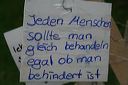 Jeden Menschen
sollte man
gleich behandeln
egal ob man
behindert ist